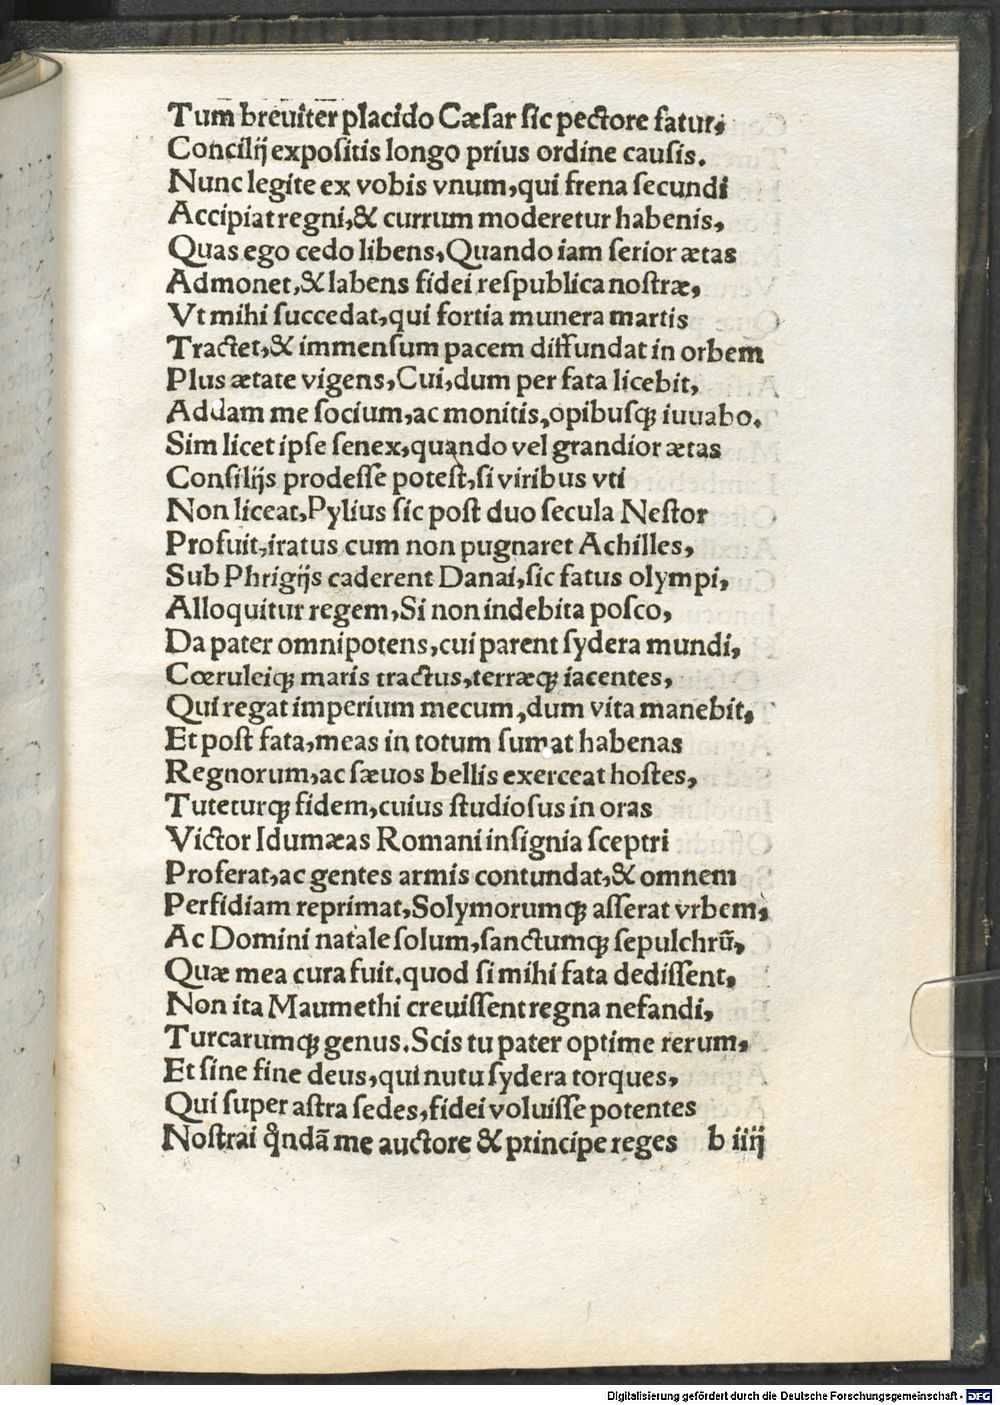 Tum breuiter placido Cæſar ſic pectore fatur,
Concilij expoſitis longo prius ordine cauſis.
Nunc legite ex vobis vnum, qui frena ſecundi
Accipiat regni, & currum moderetur habenis,
Quas ego cedo libens, Quando iam ſerior ætas
Admonet, & labens fidei reſpublica noſtræ,
Vt mihi ſuccedat, qui fortia munera martis
Tractet, & immenſum pacem diffundat in orbem
Plus ætate vigens, Cui, dum per fata licebit,
Addam me ſocium, ac monitis, opibusqꝫ iuuabo.
Sim licet ipſe ſenex, quando vel grandior ætas
Conſilijs prodeſſe poteſt, ſi viribus vti
Non liceat, Pylius ſic poſt duo ſecula Neſtor
Profuit, iratus cum non pugnaret Achilles,
Sub Phrigijs caderent Danai, ſic fatus olympi,
Alloquitur regem, Si non indebita poſco,
Da pater omnipotens, cui parent ſydera mundi,
Cœruleiqꝫ maris tractus, terræqꝫ iacentes,
Qui regat imperium mecum, dum vita manebit,
Et poſt fata, meas in totum ſumat habenas
Regnorum, ac ſæuos bellis exerceat hoſtes,
Tuteturqꝫ fidem, cuius ſtudioſus in oras
Victor Idumæas Romani inſignia ſceptri
Proferat, ac gentes armis contundat, & omnem
Perfidiam reprimat, Solymorumqꝫ aſſerat vrbem,
Ac Domini natale ſolum, ſanctumqꝫ ſepulchrū,
Quæ mea cura fuit. quod ſi mihi fata dediſſent,
Non ita Maumethi creuiſſent regna nefandi,
Turcarumqꝫ genus. Scis tu pater optime rerum,
Et ſine fine deus, qui nutu ſydera torques,
Qui ſuper aſtra ſedes, fidei voluiſſe potentes
Noſtrai qͦndā me auctore & principe reges b iiij
Digitalisierung gefördert durch die Deutsche Forschungsgemeinschaft - DFG